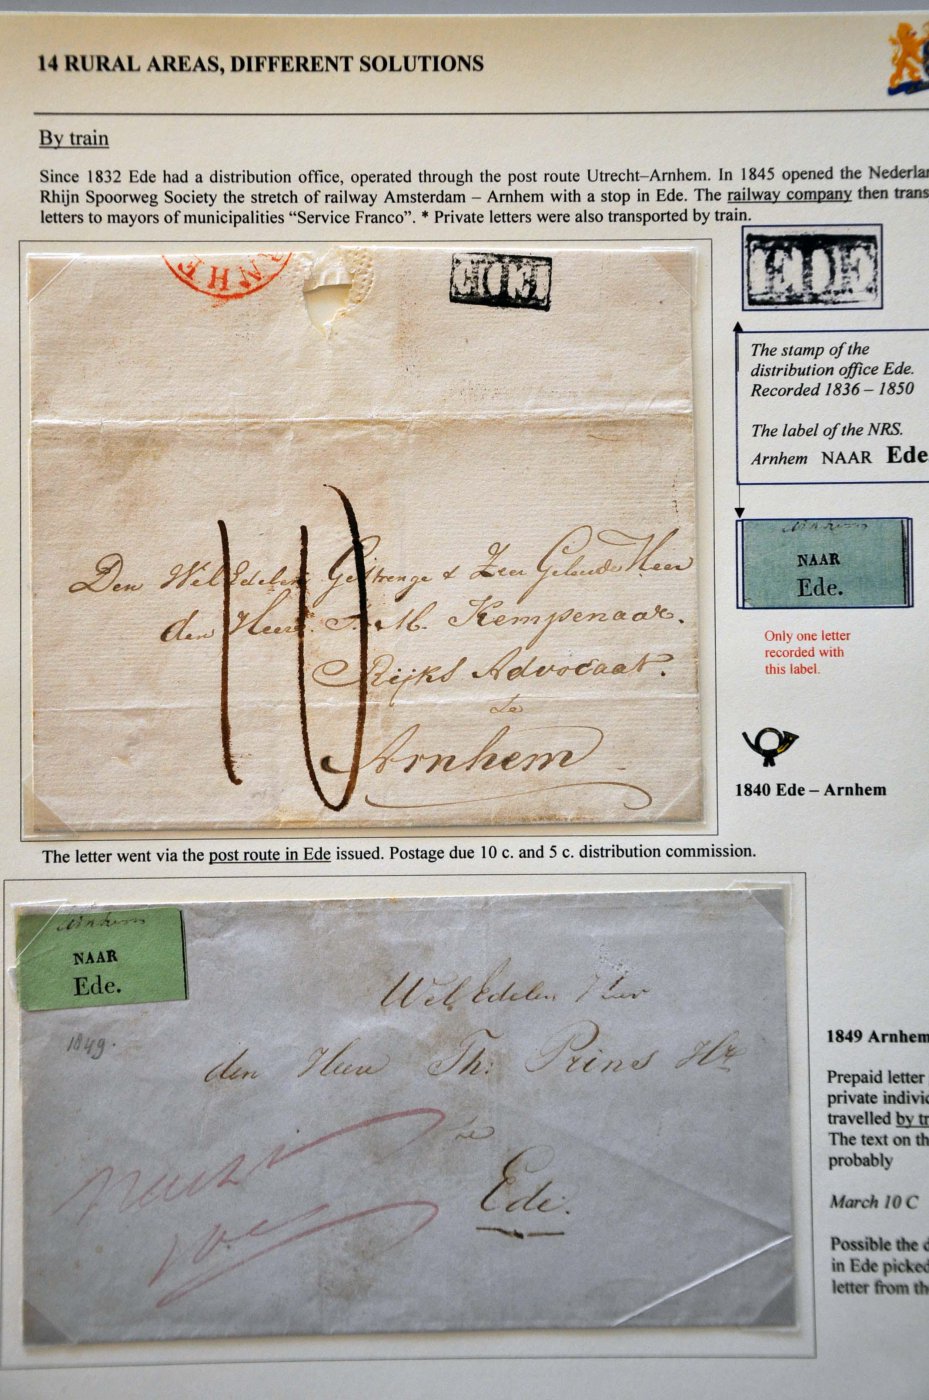 14 RURAL AREAS, DIFFERENT SOLUTIONS
By train
Since 1832 Ede had a distribution office, operated through the post route Utrecht–Arnhem. In 1845 opened the Nederlan
Rhijn Spoorweg Society the stretch of railway Amsterdam – Arnhem with a stop in Ede. The railway company then trans
letters to mayors of municipalities “Service Franco”. * Private letters were also transported by train.
ARNHEM
EDE
EDE
The stamp of the
distribution office Ede.
Recorded 1836 – 1850
The label of the NRS.
Arnhem NAAR Ede
Arnhem
NAAR
Ede.
Only one letter
recorded with
this label.
1840 Ede – Arnhem
10
Den WelEdelen Gestrenge & Zeer Geleerde Heer
den Heer F. M. Kempenaar.
Rijks Advocaat.
te
Arnhem
The letter went via the post route in Ede issued. Postage due 10 c. and 5 c. distribution commission.
Arnhem
NAAR
Ede.
1849.
WelEdelen Heer
den Heer Th: Prins Hz
te
Ede.
1849 Arnhem
Prepaid letter
private individ
travelled by tr
The text on th
probably
March 10 C
Possible the d
in Ede picked
letter from the